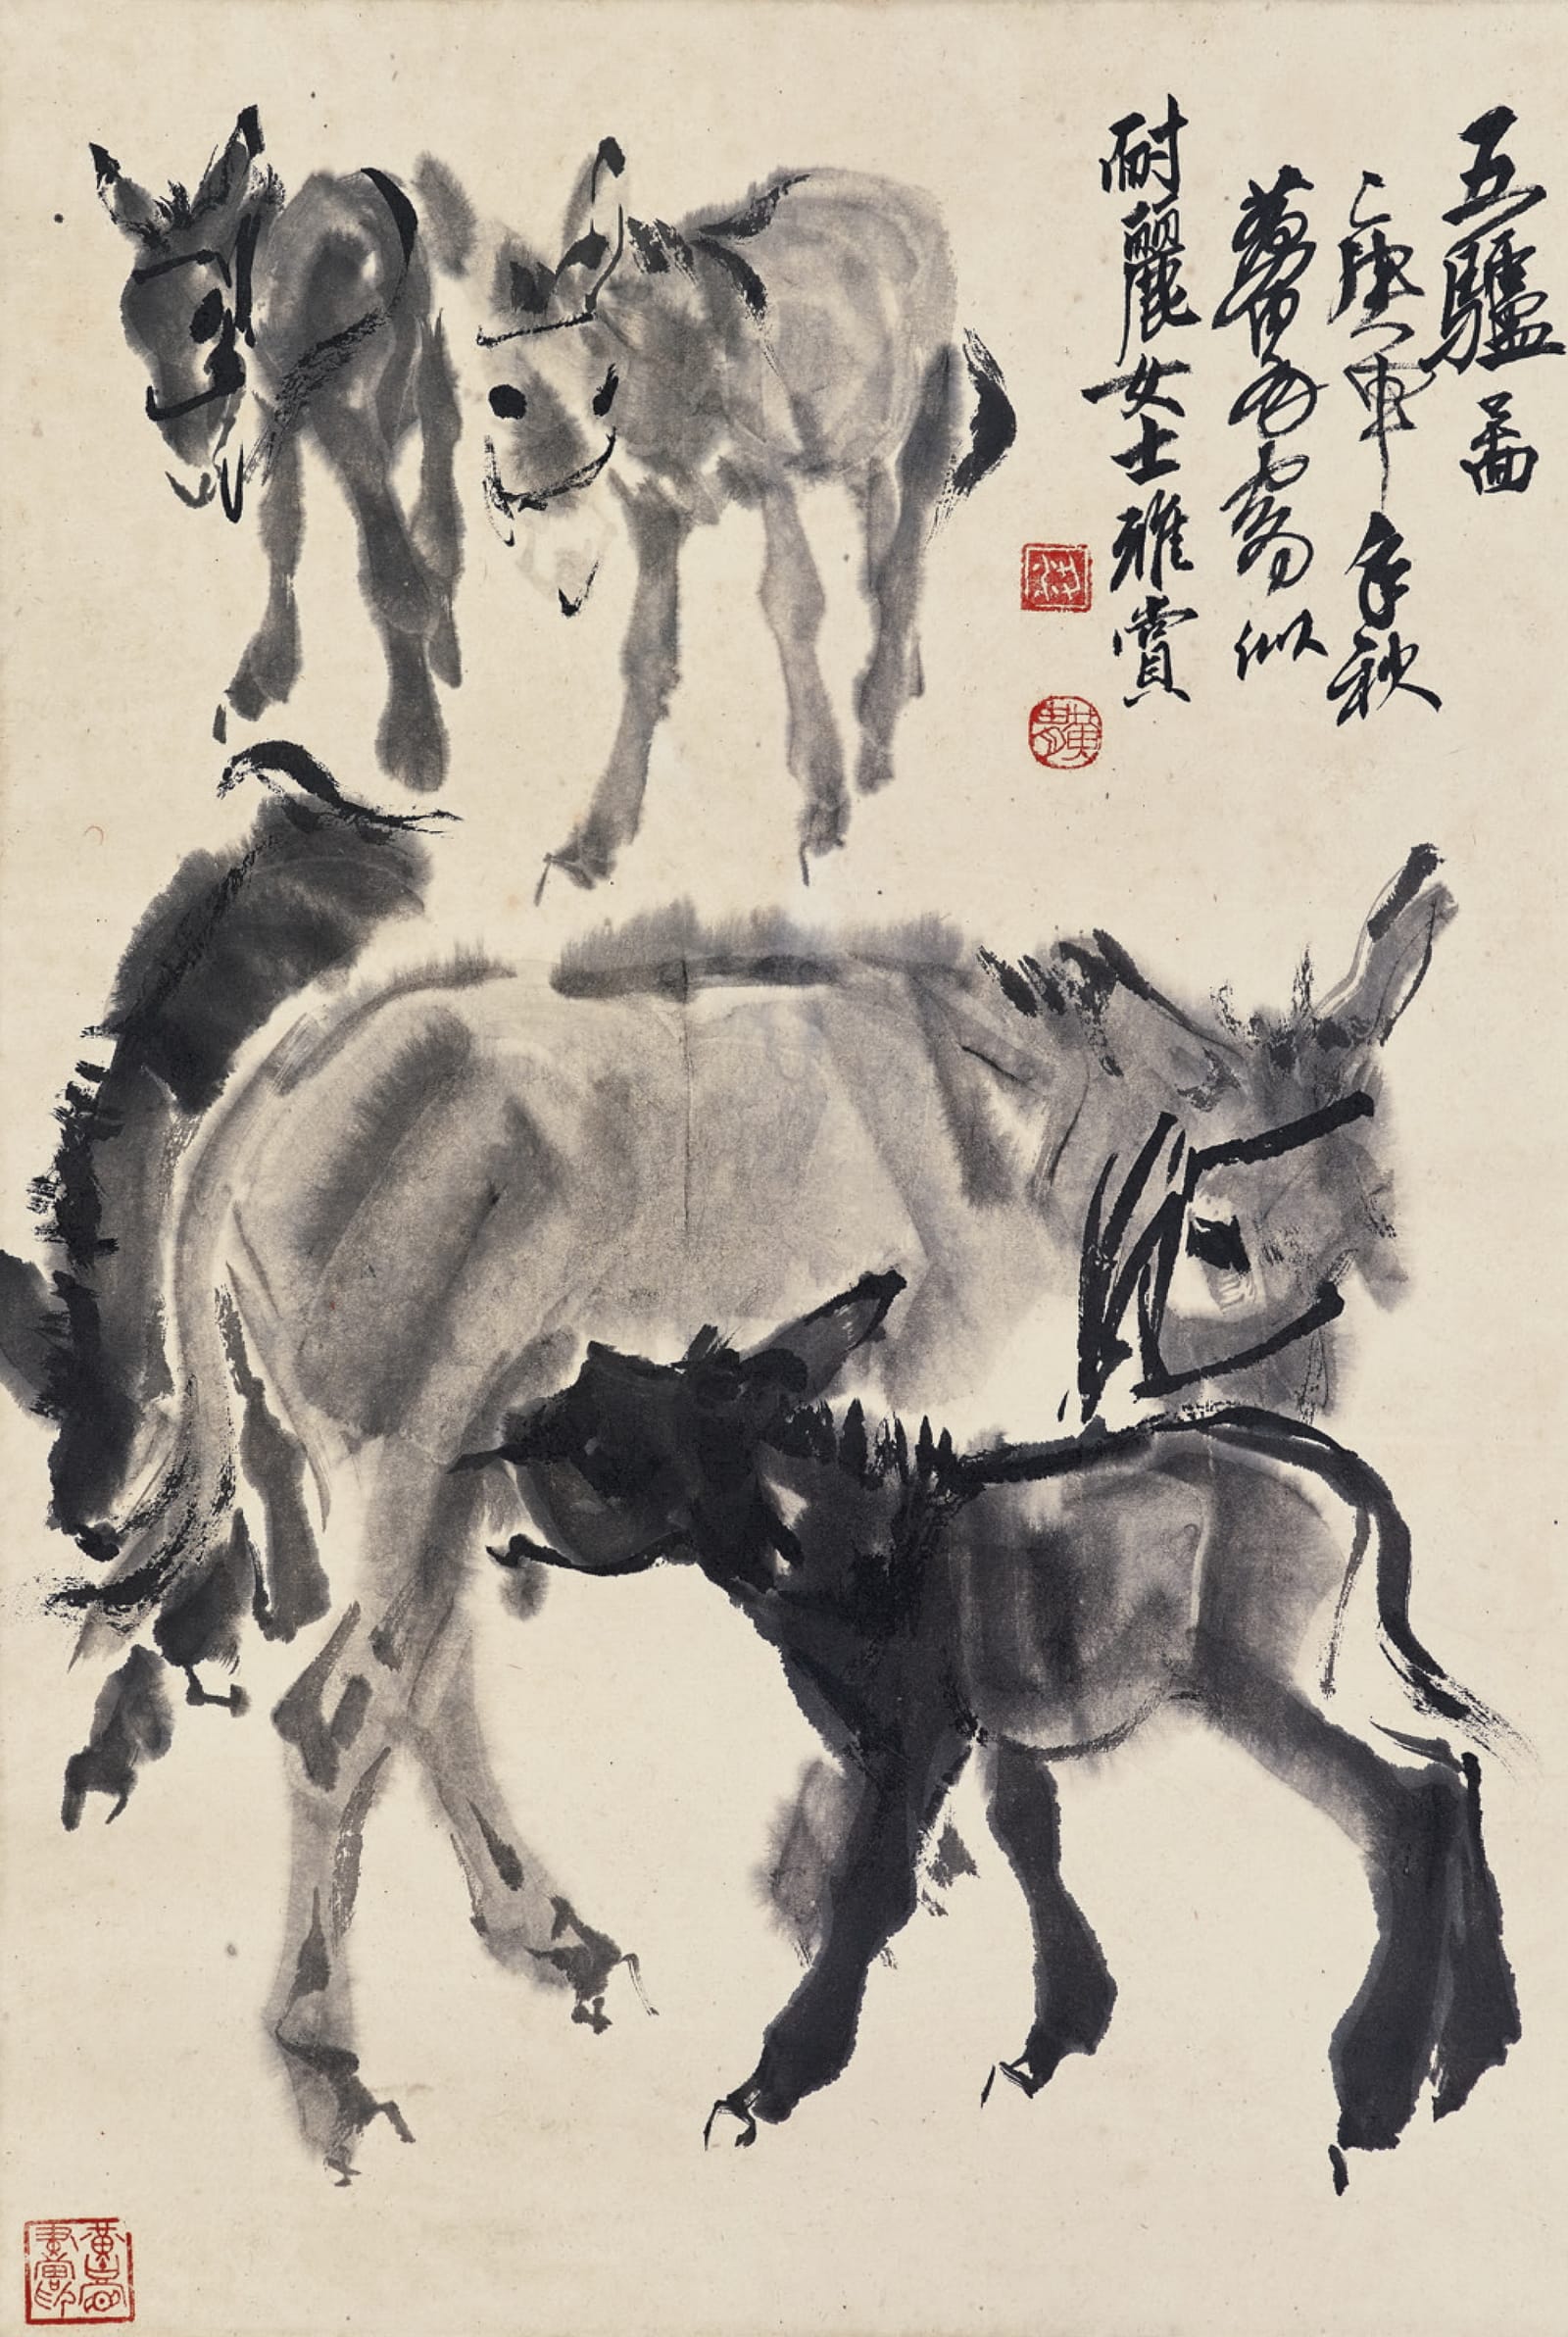 五驢圖
庚申年秋
黃冑寫似
耐麗女士雅賞
黃冑